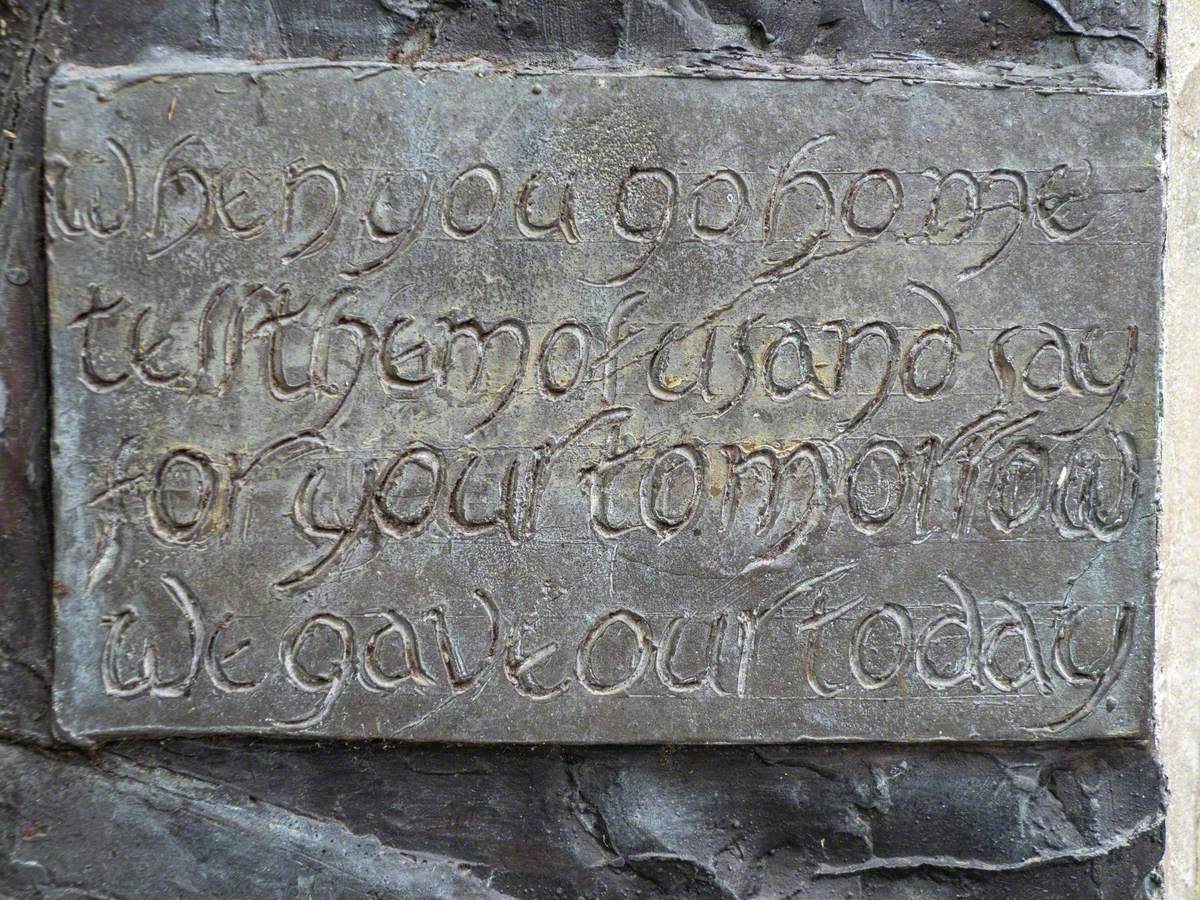 when you go home
tell them of us and say
for your tomorrow
we gave our today